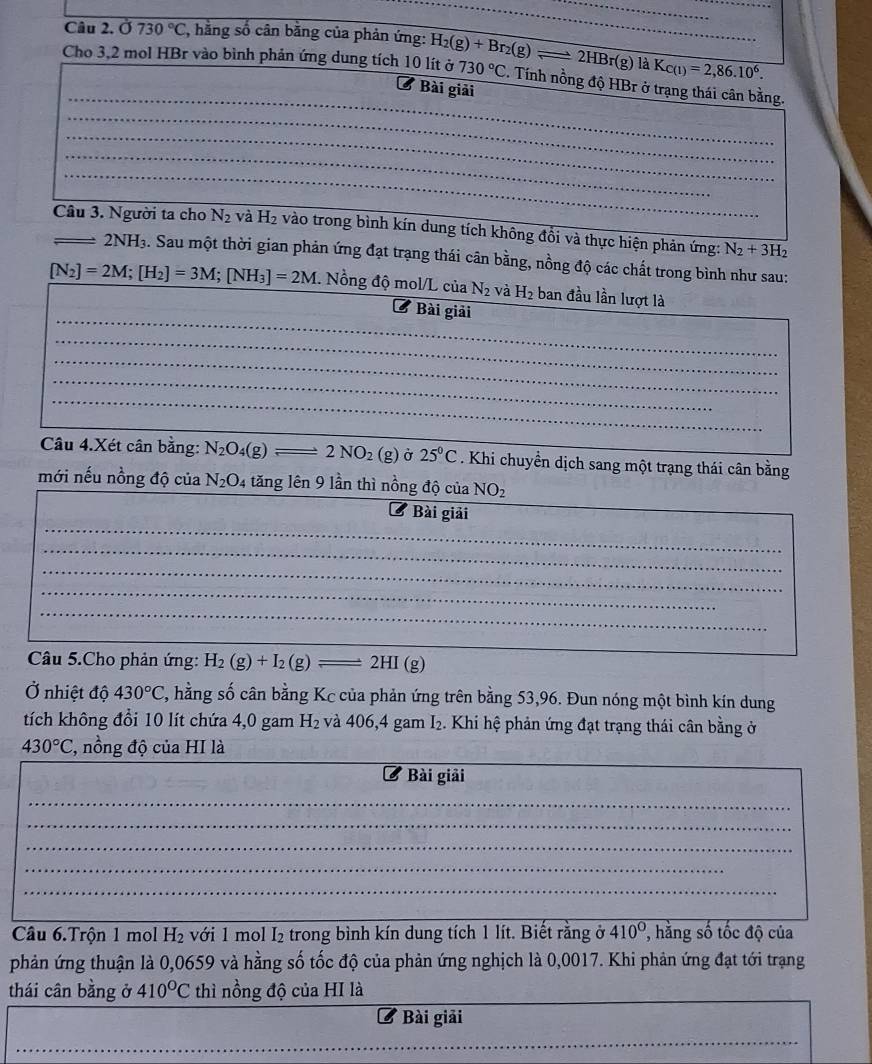 Câu 2. Ở 730 °C, hằng số cân bằng của phản ứng: H₂(g) + Br₂(g) ⇌ 2HBr(g) là K_C(1) = 2,86.10⁶.
Cho 3,2 mol HBr vào bình phản ứng dung tích 10 lít ở 730 °C. Tính nồng độ HBr ở trạng thái cân bằng.
Bài giải
Câu 3. Người ta cho N₂ và H₂ vào trong bình kín dung tích không đổi và thực hiện phản ứng: N₂ + 3H₂
⇌ 2NH₃. Sau một thời gian phản ứng đạt trạng thái cân bằng, nồng độ các chất trong bình như sau:
[N₂] = 2M; [H₂] = 3M; [NH₃] = 2M. Nồng độ mol/L của N₂ và H₂ ban đầu lần lượt là
Bài giải
Câu 4.Xét cân bằng: N₂O₄(g) ⇌ 2 NO₂ (g) ở 25⁰C . Khi chuyển dịch sang một trạng thái cân bằng
mới nếu nồng độ của N₂O₄ tăng lên 9 lần thì nồng độ của NO₂
Bài giải
Câu 5.Cho phản ứng: H₂ (g) + I₂ (g) ⇌ 2HI (g)
Ở nhiệt độ 430°C, hằng số cân bằng K_C của phản ứng trên bằng 53,96. Đun nóng một bình kín dung
tích không đổi 10 lít chứa 4,0 gam H₂ và 406,4 gam I₂. Khi hệ phản ứng đạt trạng thái cân bằng ở
430°C, nồng độ của HI là
Bài giải
Câu 6.Trộn 1 mol H₂ với 1 mol I₂ trong bình kín dung tích 1 lít. Biết rằng ở 410⁰, hằng số tốc độ của
phản ứng thuận là 0,0659 và hằng số tốc độ của phản ứng nghịch là 0,0017. Khi phản ứng đạt tới trạng
thái cân bằng ở 410⁰C thì nồng độ của HI là
Bài giải